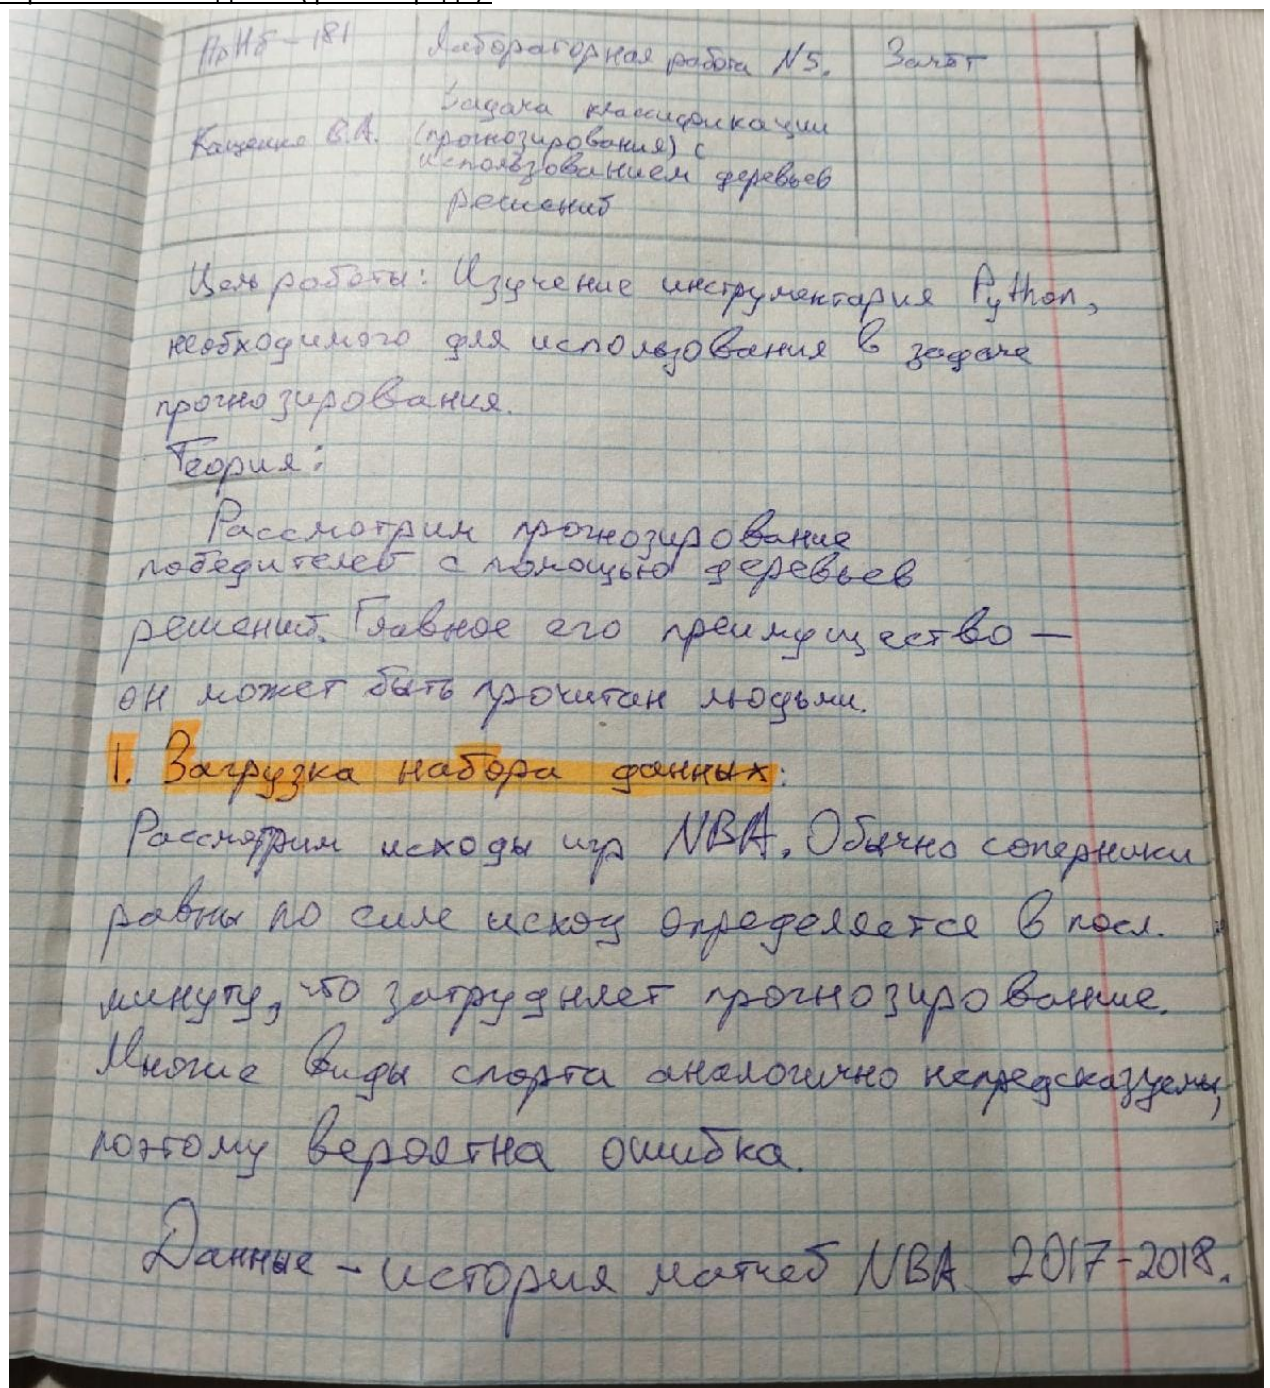 ПрИб-181
Лабораторная работа №5.
Зачёт
Кащенко В.А.
Задача классификации
(прогнозирования) с
использованием деревьев
решений
Цель работы: Изучение инструментария Python,
необходимого для использования в задаче
прогнозирования.
Теория:
Рассмотрим прогнозирование
победителей с помощью деревьев
решений. Главное его преимущество —
он может быть прочитан людьми.
1. Загрузка набора данных:
Рассмотрим исходы игр NBA. Обычно соперники
равны по силе исход определяется в посл.
минуту, что затрудняет прогнозирование.
Многие виды спорта аналогично непредсказуемы,
поэтому вероятна ошибка.
Данные - история матчей NBA 2017-2018.